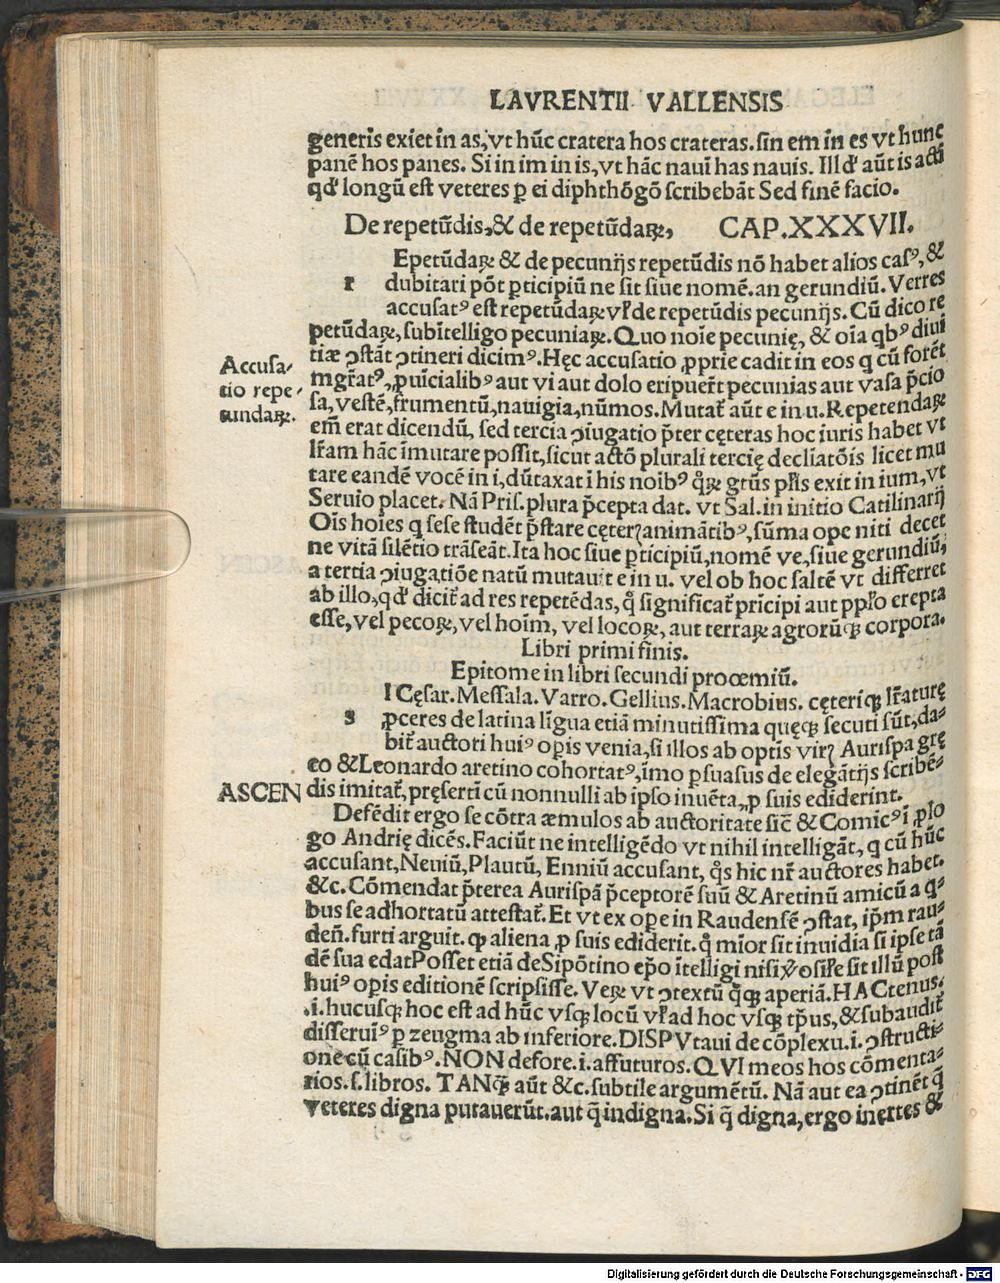 LAVRENTII VALLENSIS
generis exiet in as, vt hūc cratera hos crateras. sin em in es vt hunc
panē hos panes. Si in im in is, vt hāc nauī has nauis. Illđ aūt is acti
qđ longū est veteres ꝑ ei diphthōgō scribebāt Sed finē facio.
De repetūdis, & de repetūdaꝝ, CAP. XXXVII.
Epetūdaꝝ & de pecunijs repetūdis nō habet alios casꝰ, &
r dubitari pōt ꝑticipiū ne sit siue nomē. an gerundiū. Verres
accusatꝰ est repetūdaꝝ vł de repetūdis pecunijs. Cū dico re
petūdaꝝ, subītelligo pecuniaꝝ. Quo noīe pecunię, & oīa qbꝰ diui
tiæ ꝯstāt ꝯtineri dicimꝰ. Hęc accusatio ꝓprie cadit in eos q cū forēt
Accusa-
tio repe-
tundaꝝ.
mgr̄atꝰ, ꝓuīcialibꝰ aut vi aut dolo eripuer̄t pecunias aut vasa p̄cio
sa, vestē, frumentū, nauigia, nūmos. Mutat̄ aūt e in u. Repetendaꝝ
em̄ erat dicendū, sed tercia ꝯiugatio p̄ter cęteras hoc iuris habet vt
lr̄am hāc īmutare possit, sicut actō plurali tercię decliatōis licet mu
tare eandē vocē in i, dūtaxat i his noībꝰ q̊ꝝ gtūs pl̄is exit in ium, vt
Seruio placet. Nā Pris. plura p̄cepta dat. vt Sal. in initio Catilinarij
Oīs hoīes q sese studēt p̄stare cęteꝝ animātibꝰ, sūma ope niti decet
ne vitā silētio trāseāt. Ita hoc siue ꝑticipiū, nomē ve, siue gerundiū,
a tertia ꝯiugatiōe natū mutauit e in u. vel ob hoc saltē vt differret
ab illo, qđ dicit̄ ad res repetēdas, q̊ significat̄ prīcipi aut ppl̄o erepta
esse, vel pecoꝝ, vel hoīm, vel locoꝝ, aut terraꝝ agrorūꝙ corpora.
Libri primi finis.
Epitome in libri secundi procemiū.
I Cęsar. Messala. Varro. Gellius. Macrobius. cęteriꝙ lr̄aturę
s ꝓceres de latina līgua etiā minutissima quęꝙ secuti sūt, da-
bit̄ auctori huiꝰ oꝑis venia, si illos ab optīs virꝭ Aurispa grę
co & Leonardo aretino cohortatꝰ, īmo ꝑsuasus de elegātijs scribē-
ASCEN
dis imitat̄, pręsertī cū nonnulli ab ipso inuēta, ꝓ suis ediderint.
Defēdit ergo se cōtra æmulos ab auctoritate sic̄ & Comicꝰ i ꝓlo
go Andrię dicēs. Faciūt ne intelligēdo vt nihil intelligāt, q cū hūc
accusant, Neuiū, Plautū, Enniū accusant, q̊s hic nr̄ auctores habet.
&c. Cōmendat p̄terea Aurispā p̄ceptorē suū & Aretinū amicū a q-
bus se adhortatū attestat̄. Et vt ex oꝑe in Raudensē ꝯstat, ip̄m rau-
deñ. furti arguit. ꝙ aliena ꝓ suis ediderit. q̊ mior sit inuidia si ipse tā
dē sua edat Posset etiā de Sipōtino ep̄o ītelligi nisi ꝟosił̄e sit illū post
huiꝰ oꝑis editionē scripsisse. Veꝝ vt ꝯtextū q̊ꝙ aperiā. HACtenus.
.i. hucusꝙ hoc est ad hūc vsꝙ locū vł ad hoc vsꝙ tp̄us, & subaudit̄
disseruiꝰ ꝑ zeugma ab inferiore. DISPVtaui de cōplexu. i. ꝯstructi-
one cū casibꝰ. NON defore. i. affuturos. QVI meos hos cōmenta-
rios. s. libros. TANꝙ aūt &c. subtile argumētū. Nā aut ea ꝯtinēt q̄
veteres digna putauerūt. aut q̄ indigna. Si q̄ digna, ergo inertes &
Digitalisierung gefördert durch die Deutsche Forschungsgemeinschaft - DFG